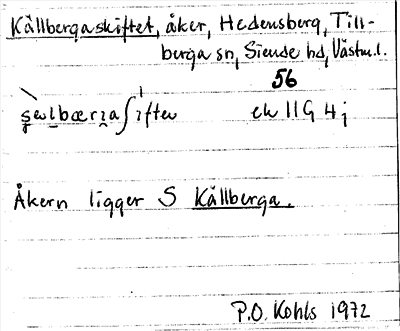 Kållbergaskiftet, åker, Hedensberg, Till-
berga sn, Siende hd, Västm.l.
56
ek 11G 4j
Åkern ligger S Kållberga.
P.O. Kohls 1972